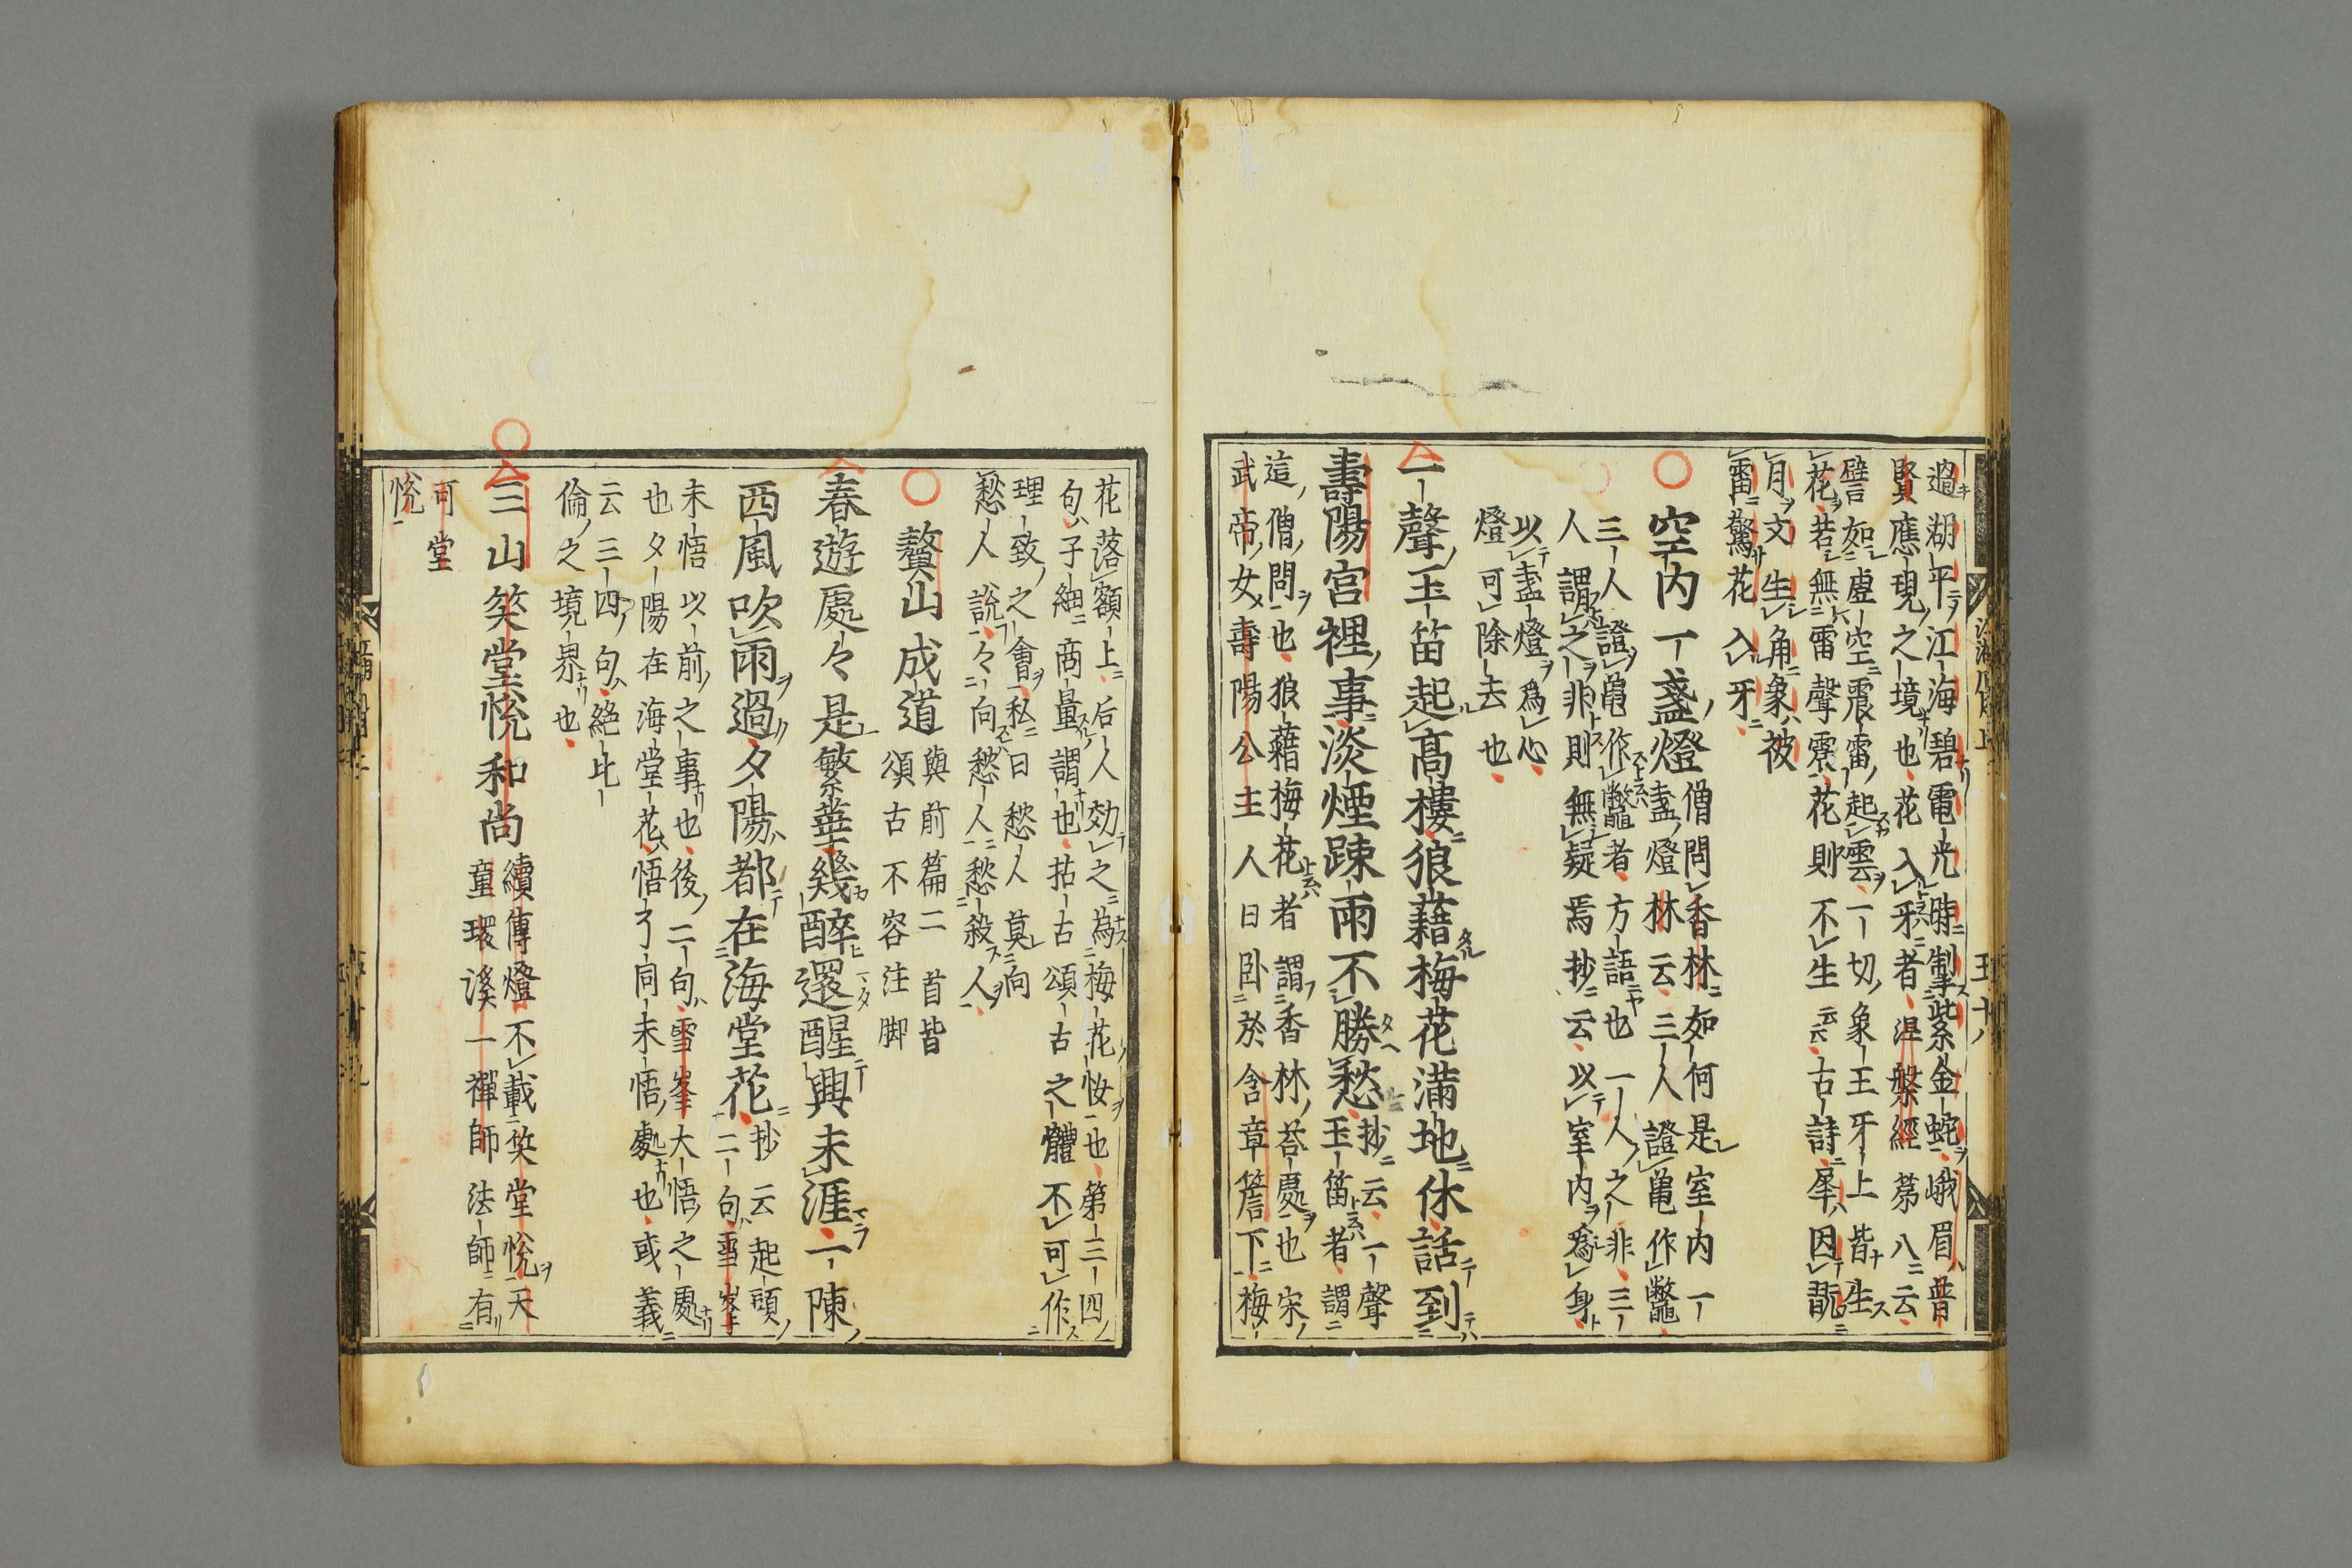 過湖平江海碧電光時掣紫金蛇峨眉普
賢應現之境也花入牙者涅槃經第八云
譬如虛空震雷起雲一切象王牙上皆生
花若無雷聲震花則不生云云古詩犀因翫
月文生角象被
雷驚花入牙
室内一盞燈
僧問香林如何是室内一
盞燈林云三人證龜作鱉
三人證龜作鱉者方語也一人之非三
人謂之非則無疑焉抄云以室内爲身
以盞燈爲心
燈可除去也
一聲玉笛起高樓狼藉梅花滿地休話到
壽陽宮裡事淡煙踈雨不勝愁
抄云一聲
玉笛者謂
這僧問也狼藉梅花者謂香林荅處也宋
武帝女壽陽公主人日卧於含章簷下梅
花落額上后人効之為梅花妝也第三四
句子細商量謂也拈古頌古之體不可作
理致之會私曰愁人莫向
愁人說々向愁人愁殺人
贅山成道
與前篇二首皆
頌古不容注脚
春遊處々是繁華幾醉還醒興未涯一陳
西風吹雨過夕陽都在海堂花
抄云起頭
二句雪峯
未悟以前之事也後二句雪峯大悟之處
也夕陽在海堂花悟了同未悟處也或義
云三四句絕比
倫之境界也
三山笑堂悅和尚
續傳燈不載笑堂悅天
童環溪一禪師法師有
可堂
悅